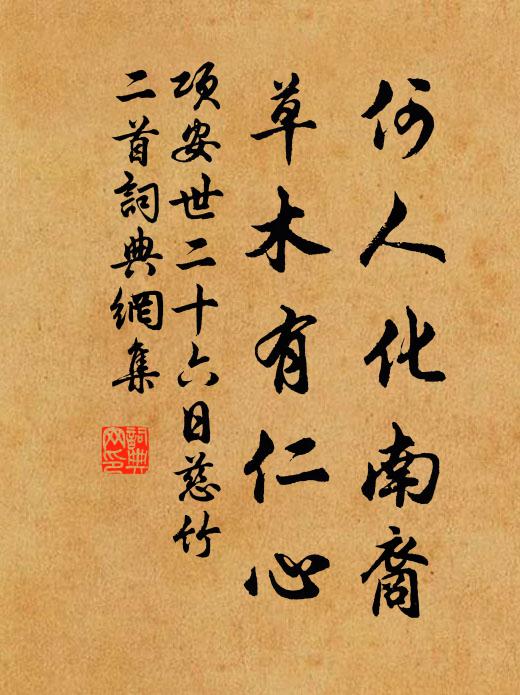 何人化南裔
草木有仁心
項安世二十六日慈竹
二首詞典網集
詞典網印